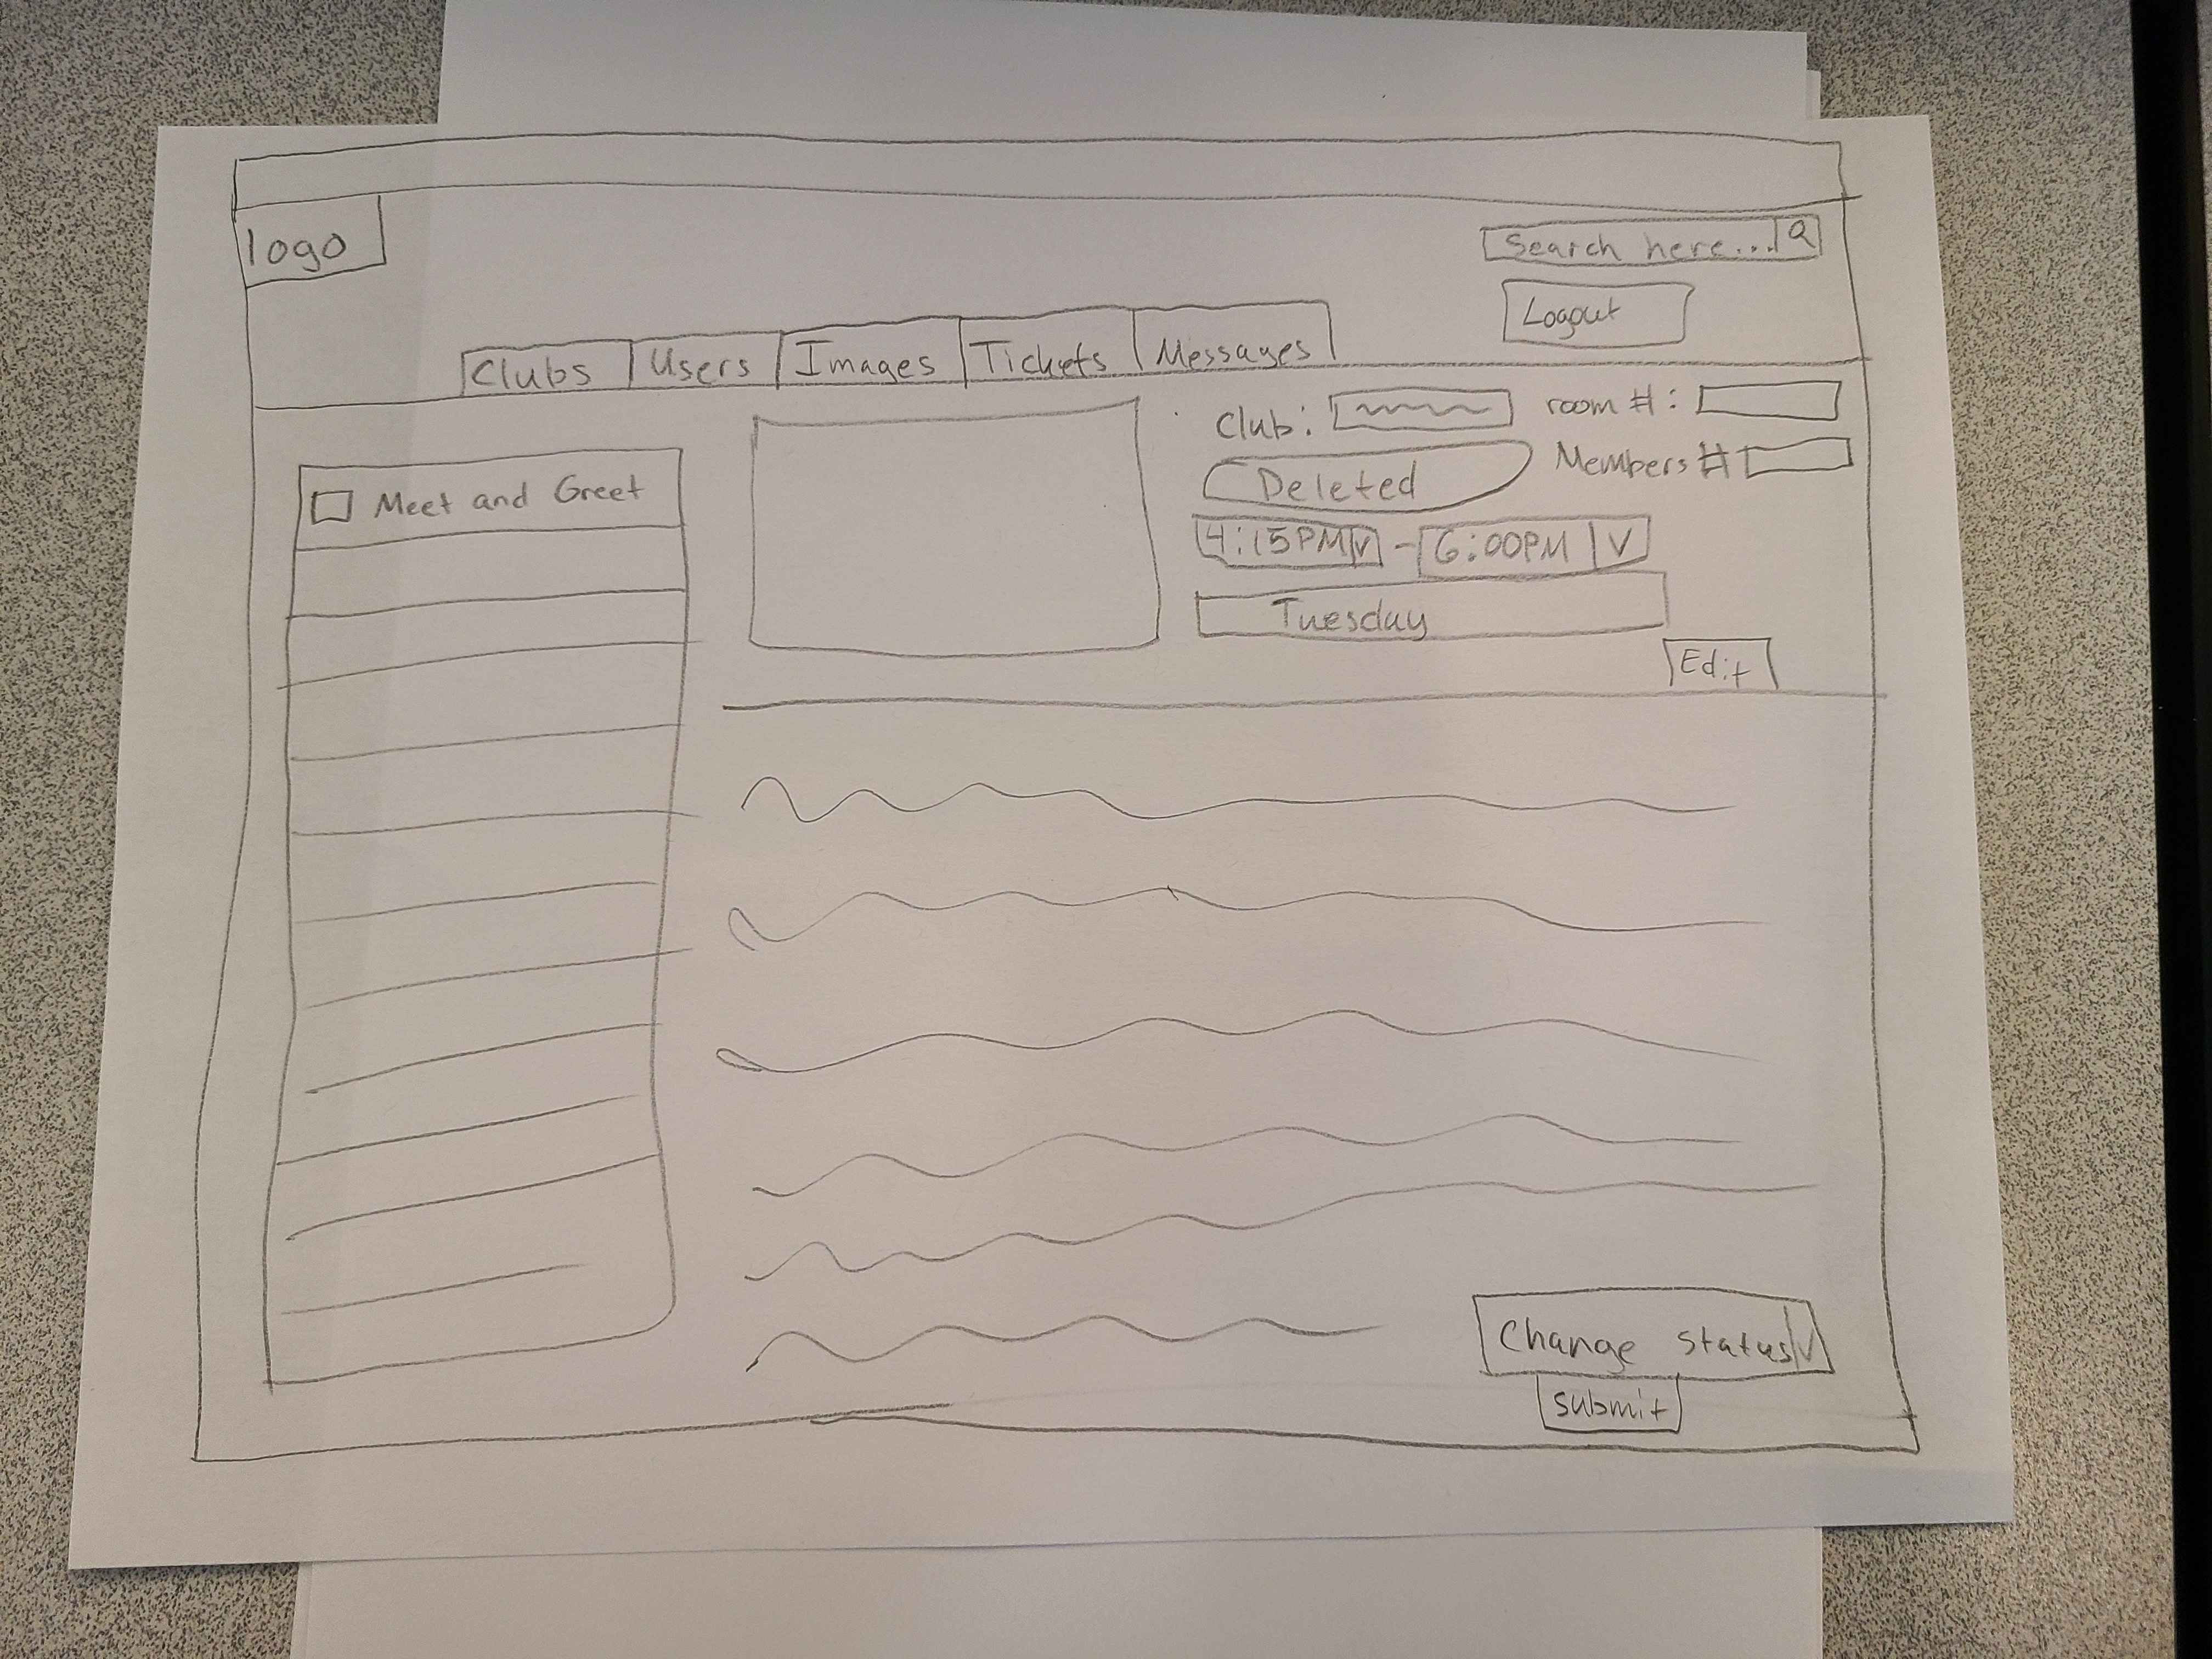 logo
Search here... Q
Logout
Clubs Users Images Tickets Messages
Meet and Greet
Club: room #:
Deleted Members #
4:15PM V - 6:00PM V
Tuesday
Edit
Change status V
submit